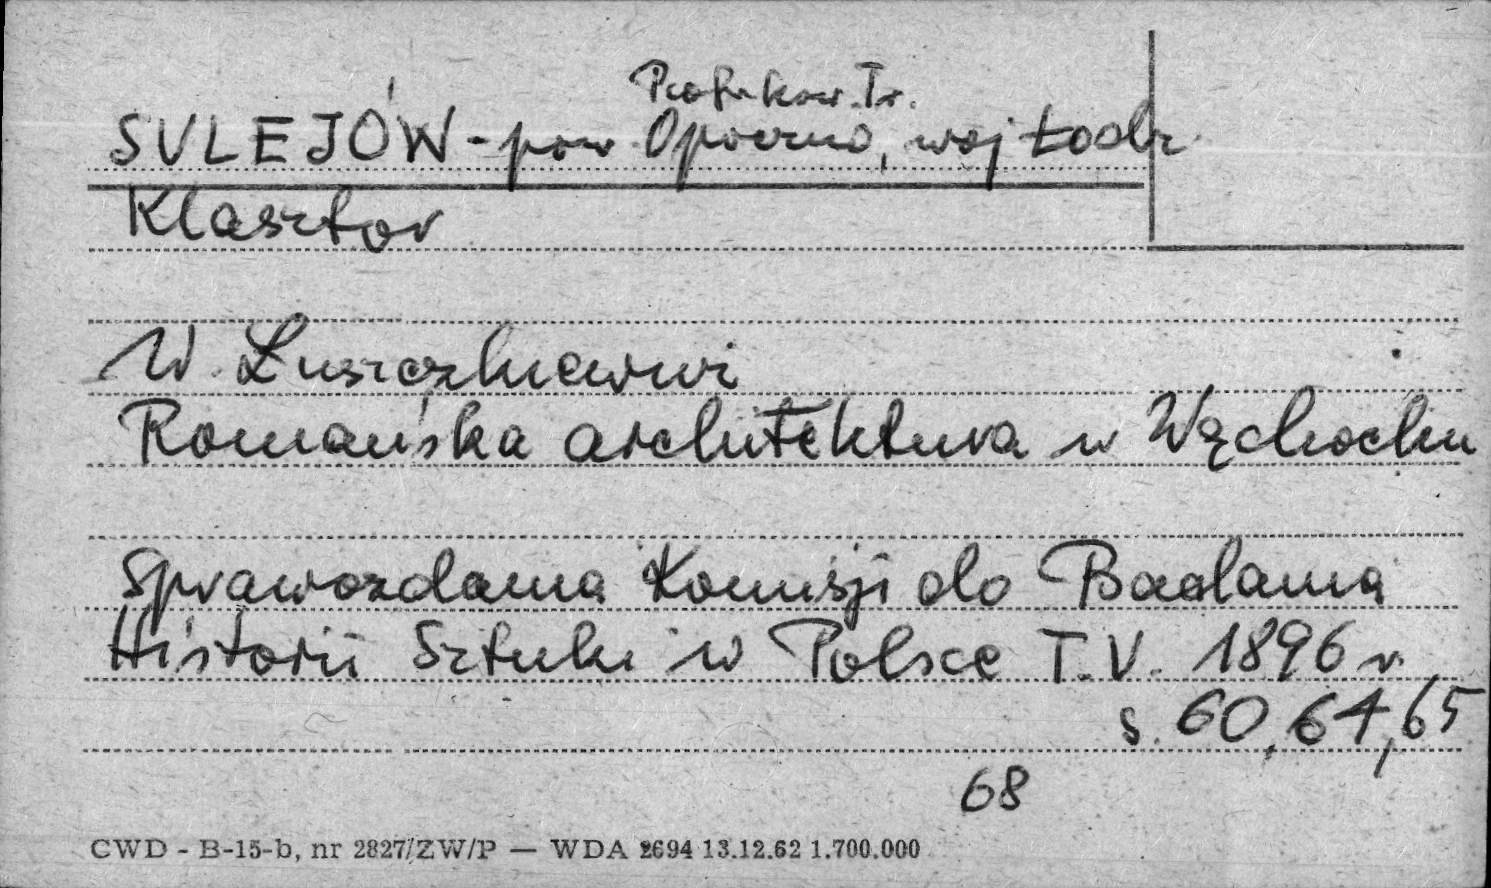 Piotrków Tr.
SULEJÓW - pow. Opoczno, woj Łódź
Klasztor
W. Łuszczkiewicz
Romańska architektura w Wąchocku
Sprawozdania Komisji do Badania
Historii Sztuki w Polsce T.V. 1896 r.
s. 60, 64, 65
68
CWD - B-15-b, nr 2827/ZW/P — WDA 2694 13.12.62 1.700.000